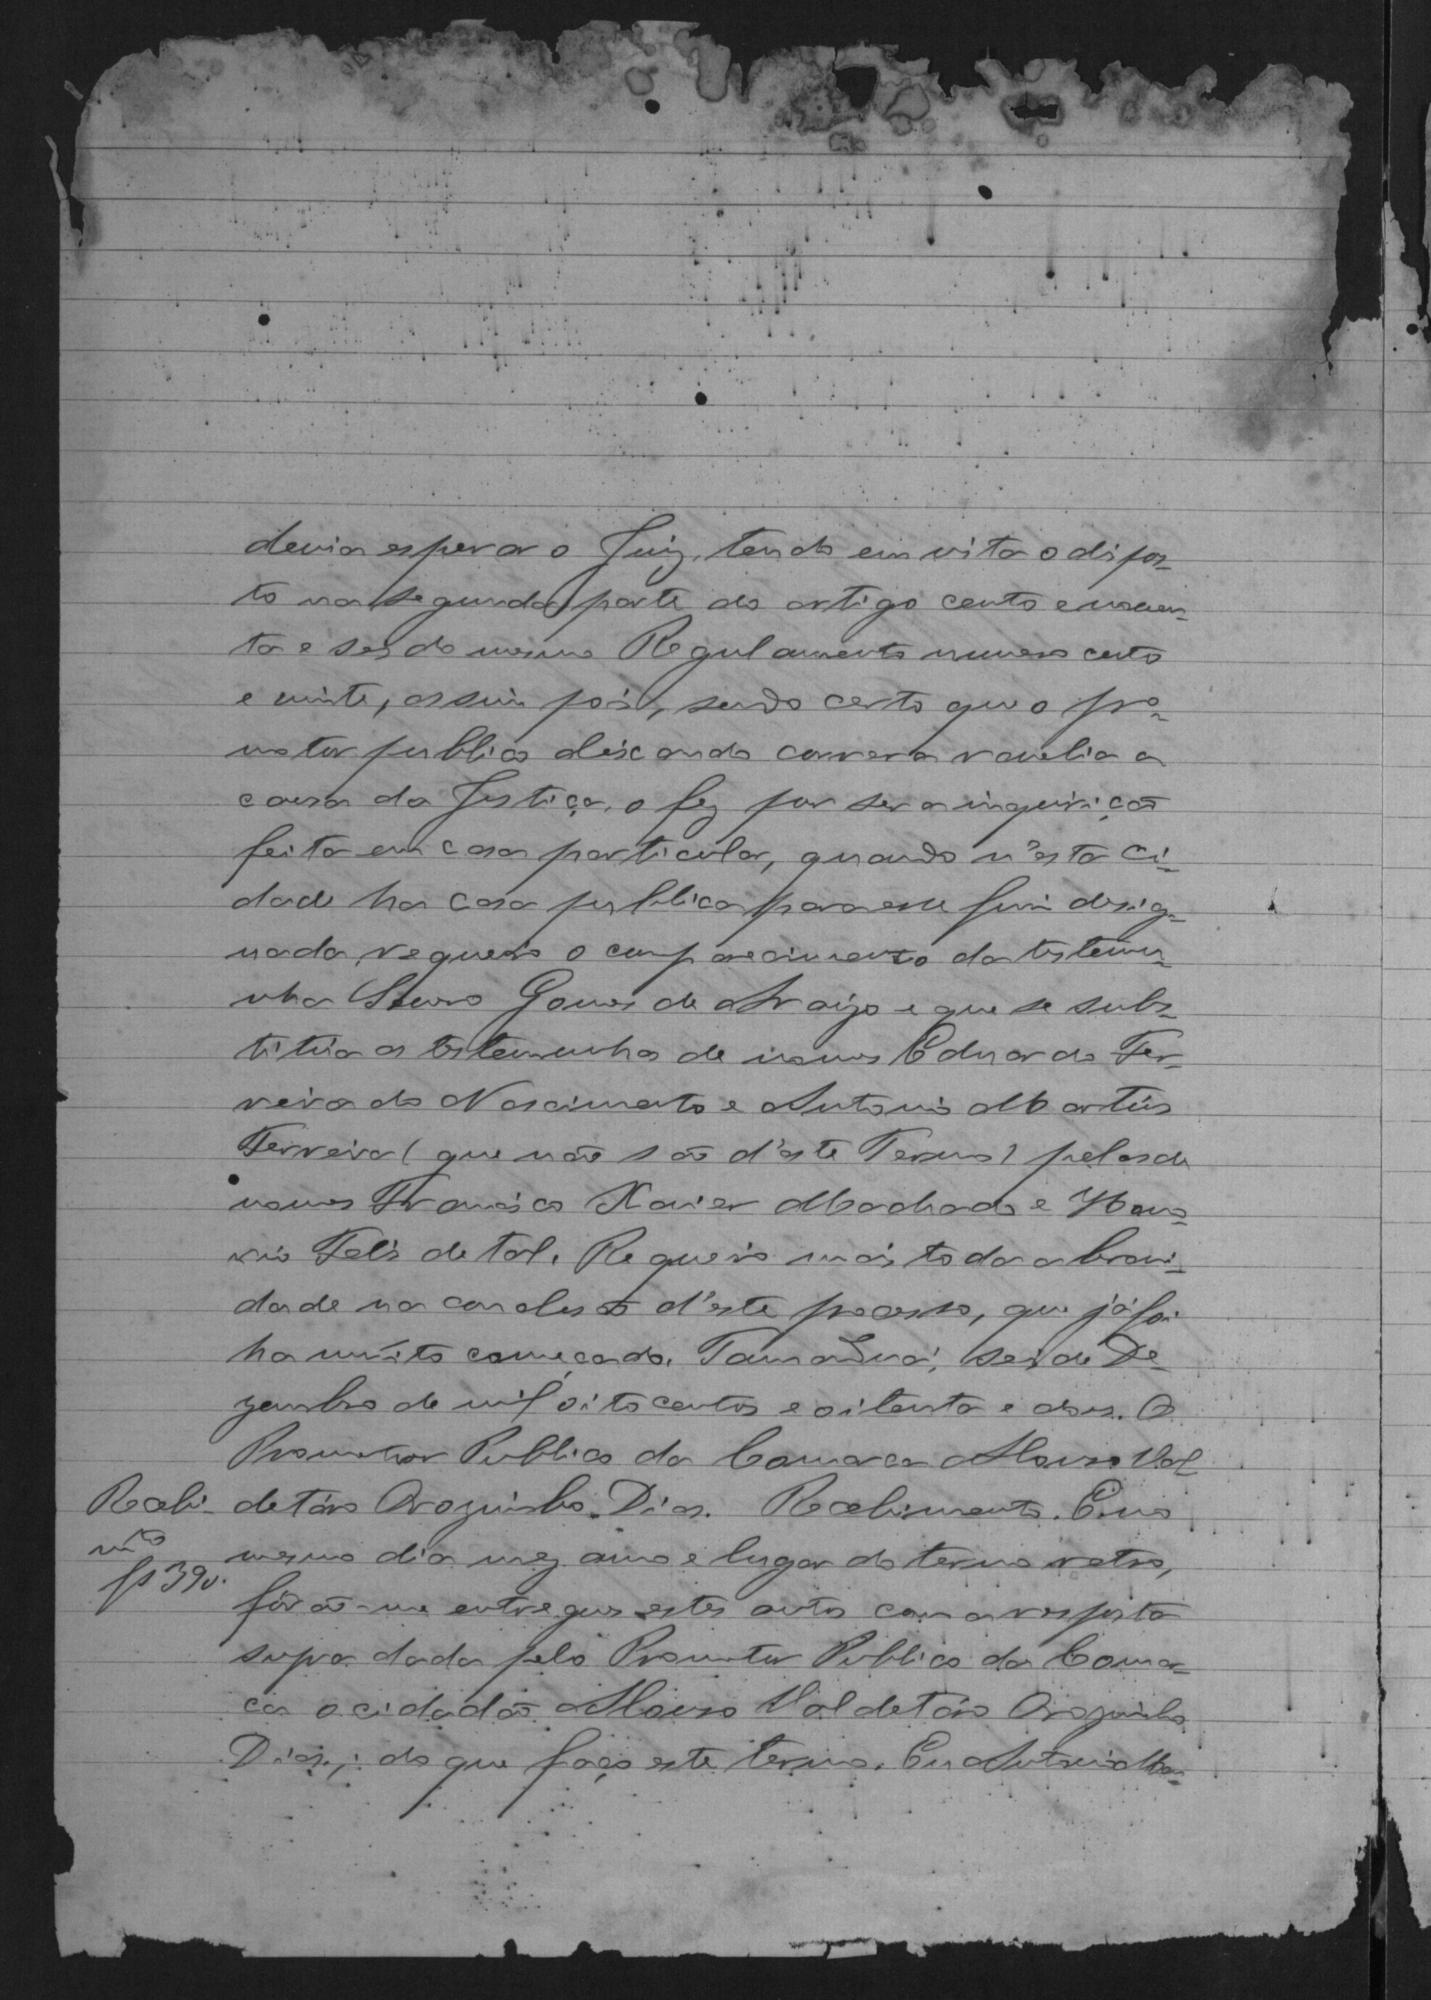 devia esperar o Juiz, tendo em vista o dispos-
to na segunda parte do artigo cento e noven-
ta e seis do mesmo Regulamento numero cento
e vinte, assim pois, sendo certo que o pro-
motor publico deixando correr a revelia a
causa da Justiça, o fez por ser a inquirição
feita em casa particular, quando n'esta ci-
dade ha casa publica para esse fim desig-
nada, requeiro o comparecimento da testemu-
nha Gomes de Araujo e que se subs-
titúa as testemunhas de nomes Eduardo Fer-
reira do Nascimento e Antonio Martins
Ferreira (que não são d'este Termo) pelas de
nomes Francisco Xavier Machado e Hono-
rio Felis de tal. Requeiro mais toda a brevi-
dade na conclusão d'este processo, que já foi
ha muito começado. Tamanduá, seis de De-
zembro de mil oitocentos e oitenta e dous. O
Promotor Publico da Comarca Val
Recebi- detáro Orozimbo Dias. Recebimento. E no
mto mesmo dia mez anno e lugar do termo retro,
fs 39v. fôrão-me entregues estes autos com a resposta
supra dada pelo Promotor Publico da Comar-
ca o cidadão Valdetáro Orozimbo
Dias; do que faço este termo. Eu Antonio